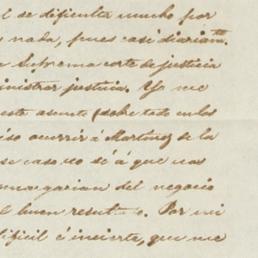 l se dificulta mucho por
s nada, pues casi diariamte
a Suprema corte de justicia
ministrar justicia. Yo me
este asunto (sobre todo en los
iso ocurrir á Martinez de la
ese caso no se á que nos
encargarian del negocio
l buen resul o. Por mi
dificil é incierto, que me